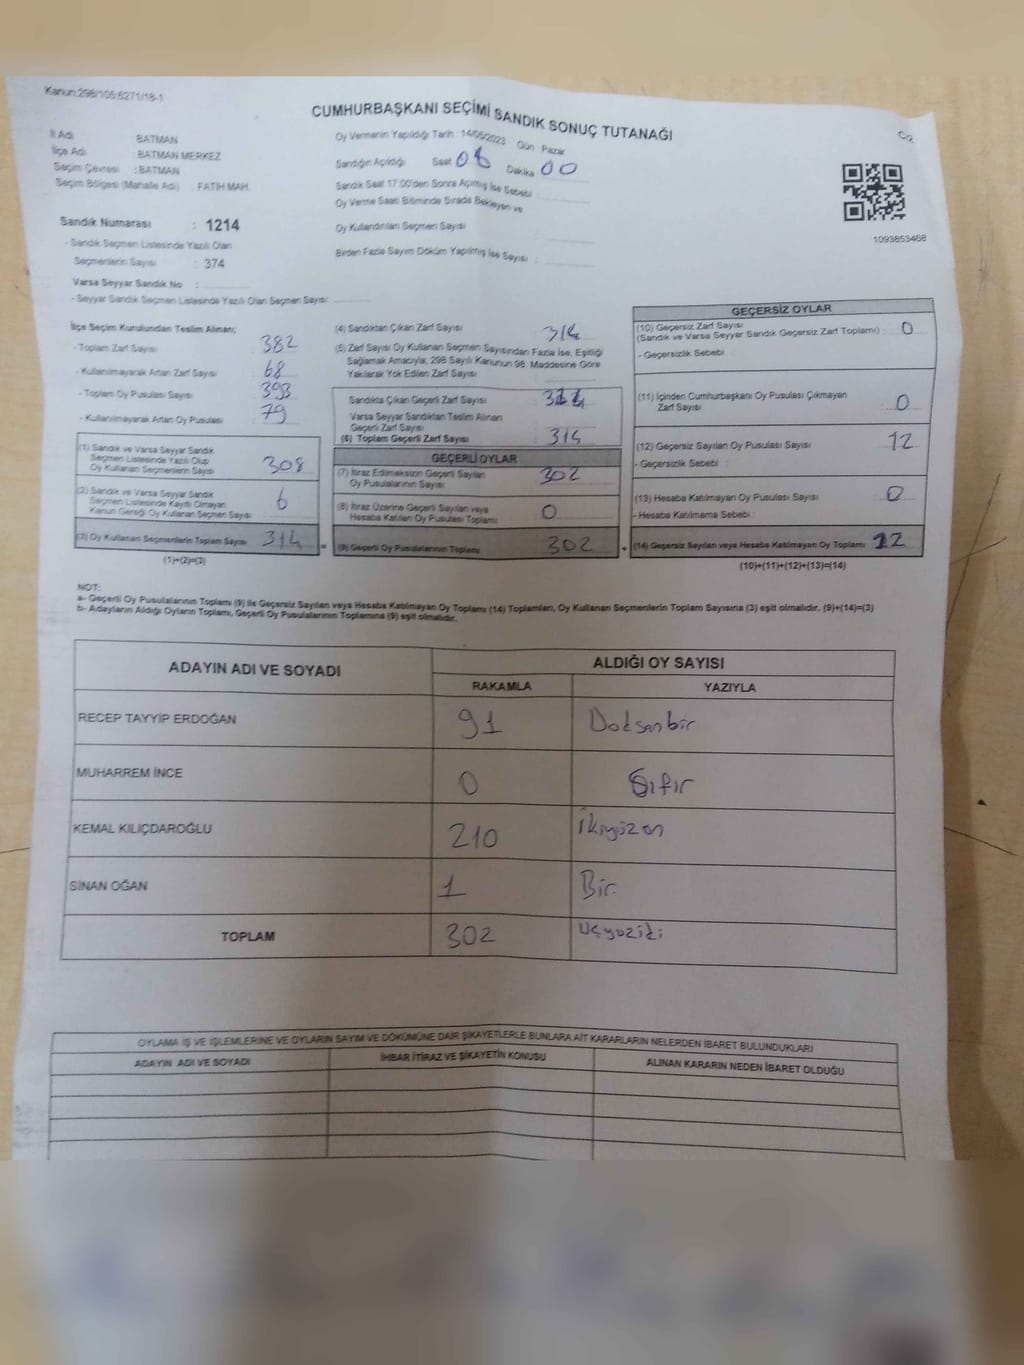 Kanun:298/105;6271/18-1
CUMHURBAŞKANI SEÇİMİ SANDIK SONUÇ TUTANAĞI
C/2
İl Adı BATMAN
İlçe Adı : BATMAN MERKEZ
Seçim Çevresi : BATMAN
Seçim Bölgesi (Mahalle Adı) : FATİH MAH.
Oy Vermenin Yapıldığı Tarih : 14/05/2023 Gün Pazar
Sandığın Açıldığı Saat 08 Dakika 00
Sandık Saat 17:00'den Sonra Açılmış İse Sebebi :
Oy Verme Saati Bitiminde Sırada Bekleyen ve
Oy Kullandırılan Seçmen Sayısı
Birden Fazla Sayım Döküm Yapılmış İse Sayısı :
1093853468
Sandık Numarası : 1214
- Sandık Seçmen Listesinde Yazılı Olan
Seçmenlerin Sayısı : 374
Varsa Seyyar Sandık No :
- Seyyar Sandık Seçmen Listesinde Yazılı Olan Seçmen Sayısı:
İlçe Seçim Kurulundan Teslim Alınan;
- Toplam Zarf Sayısı : 382
- Kullanılmayarak Artan Zarf Sayısı : 68
- Toplam Oy Pusulası Sayısı : 393
- Kullanılmayarak Artan Oy Pusulası : 79
(1) Sandık ve Varsa Seyyar Sandık
Seçmen Listesinde Yazılı Olup
Oy Kullanan Seçmenlerin Sayısı 308
(2) Sandık ve Varsa Seyyar Sandık
Seçmen Listesinde Kayıtlı Olmayan
Kanun Gereği Oy Kullanan Seçmen Sayısı 6
(3) Oy Kullanan Seçmenlerin Toplam Sayısı 314
(1)+(2)=(3)
(4) Sandıktan Çıkan Zarf Sayısı : 314
(5) Zarf Sayısı Oy Kullanan Seçmen Sayısından Fazla İse, Eşitliği
Sağlamak Amacıyla; 298 Sayılı Kanunun 98. Maddesine Göre
Yakılarak Yok Edilen Zarf Sayısı
Sandıkta Çıkan Geçerli Zarf Sayısı : 314
Varsa Seyyar Sandıktan Teslim Alınan
Geçerli Zarf Sayısı
(6) Toplam Geçerli Zarf Sayısı : 314
GEÇERLİ OYLAR
(7) İtiraz Edilmeksizin Geçerli Sayılan
Oy Pusulalarının Sayısı 302
(8) İtiraz Üzerine Geçerli Sayılan veya
Hesaba Katılan Oy Pusulası Toplamı 0
= (9) Geçerli Oy Pusulalarının Toplamı 302
GEÇERSİZ OYLAR
(10) Geçersiz Zarf Sayısı
(Sandık ve Varsa Seyyar Sandık Geçersiz Zarf Toplamı) : 0
- Geçersizlik Sebebi :
(11) İçinden Cumhurbaşkanı Oy Pusulası Çıkmayan
Zarf Sayısı : 0
(12) Geçersiz Sayılan Oy Pusulası Sayısı : 12
- Geçersizlik Sebebi :
(13) Hesaba Katılmayan Oy Pusulası Sayısı : 0
- Hesaba Katılmama Sebebi :
+ (14) Geçersiz Sayılan veya Hesaba Katılmayan Oy Toplamı : 12
(10)+(11)+(12)+(13)=(14)
NOT:
a- Geçerli Oy Pusulalarının Toplamı (9) ile Geçersiz Sayılan veya Hesaba Katılmayan Oy Toplamı (14) Toplamları, Oy Kullanan Seçmenlerin Toplam Sayısına (3) eşit olmalıdır. (9)+(14)=(3)
b- Adayların Aldığı Oyların Toplamı, Geçerli Oy Pusulalarının Toplamına (9) eşit olmalıdır.
ADAYIN ADI VE SOYADI ALDIĞI OY SAYISI
RAKAMLA YAZIYLA
RECEP TAYYİP ERDOĞAN 91 Doksanbir
MUHARREM İNCE 0 Sıfır
KEMAL KILIÇDAROĞLU 210 İkiyüzon
SİNAN OĞAN 1 Bir
TOPLAM 302 Üçyüziki
OYLAMA İŞ VE İŞLEMLERİNE VE OYLARIN SAYIM VE DÖKÜMÜNE DAİR ŞİKAYETLERLE BUNLARA AİT KARARLARIN NELERDEN İBARET BULUNDUKLARI
ADAYIN ADI VE SOYADI İHBAR İTİRAZ VE ŞİKAYETİN KONUSU ALINAN KARARIN NEDEN İBARET OLDUĞU